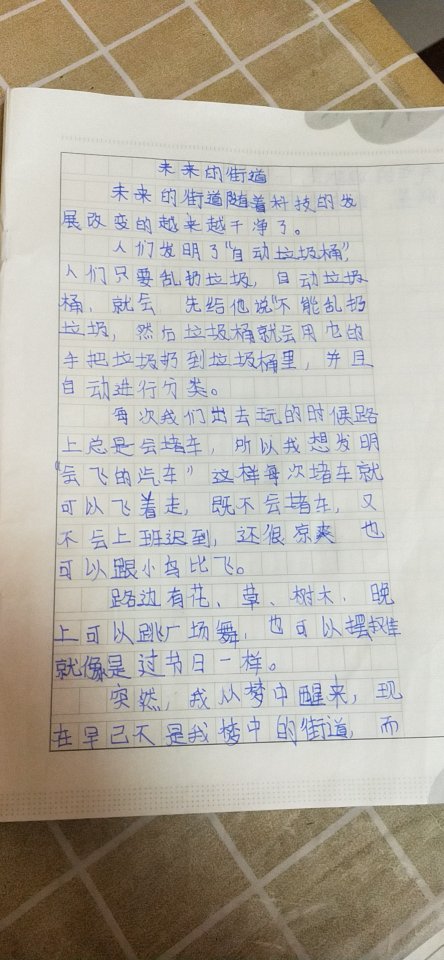 未来的街道
未来的街道随着科技的发
展改变的越来越干净了。
人们发明了“自动垃圾桶”,
人们只要乱扔垃圾,自动垃圾
桶,就会 先给他说“不能乱扔
垃圾,然后垃圾桶就会用它的
手把垃圾扔到垃圾桶里,并且
自动进行分类。
每次我们出去玩的时候路
上总是会堵车,所以我想发明
“会飞的汽车”这样每次堵车就
可以飞着走,既不会堵车,又
不会上班迟到,还很凉爽 也
可以跟小鸟比飞。
路边有花、草、树木,晚
上可以跳广场舞,也可以摆摊
就像是过节日一样。
突然,我从梦中醒来,现
在早已不是我梦中的街道,而